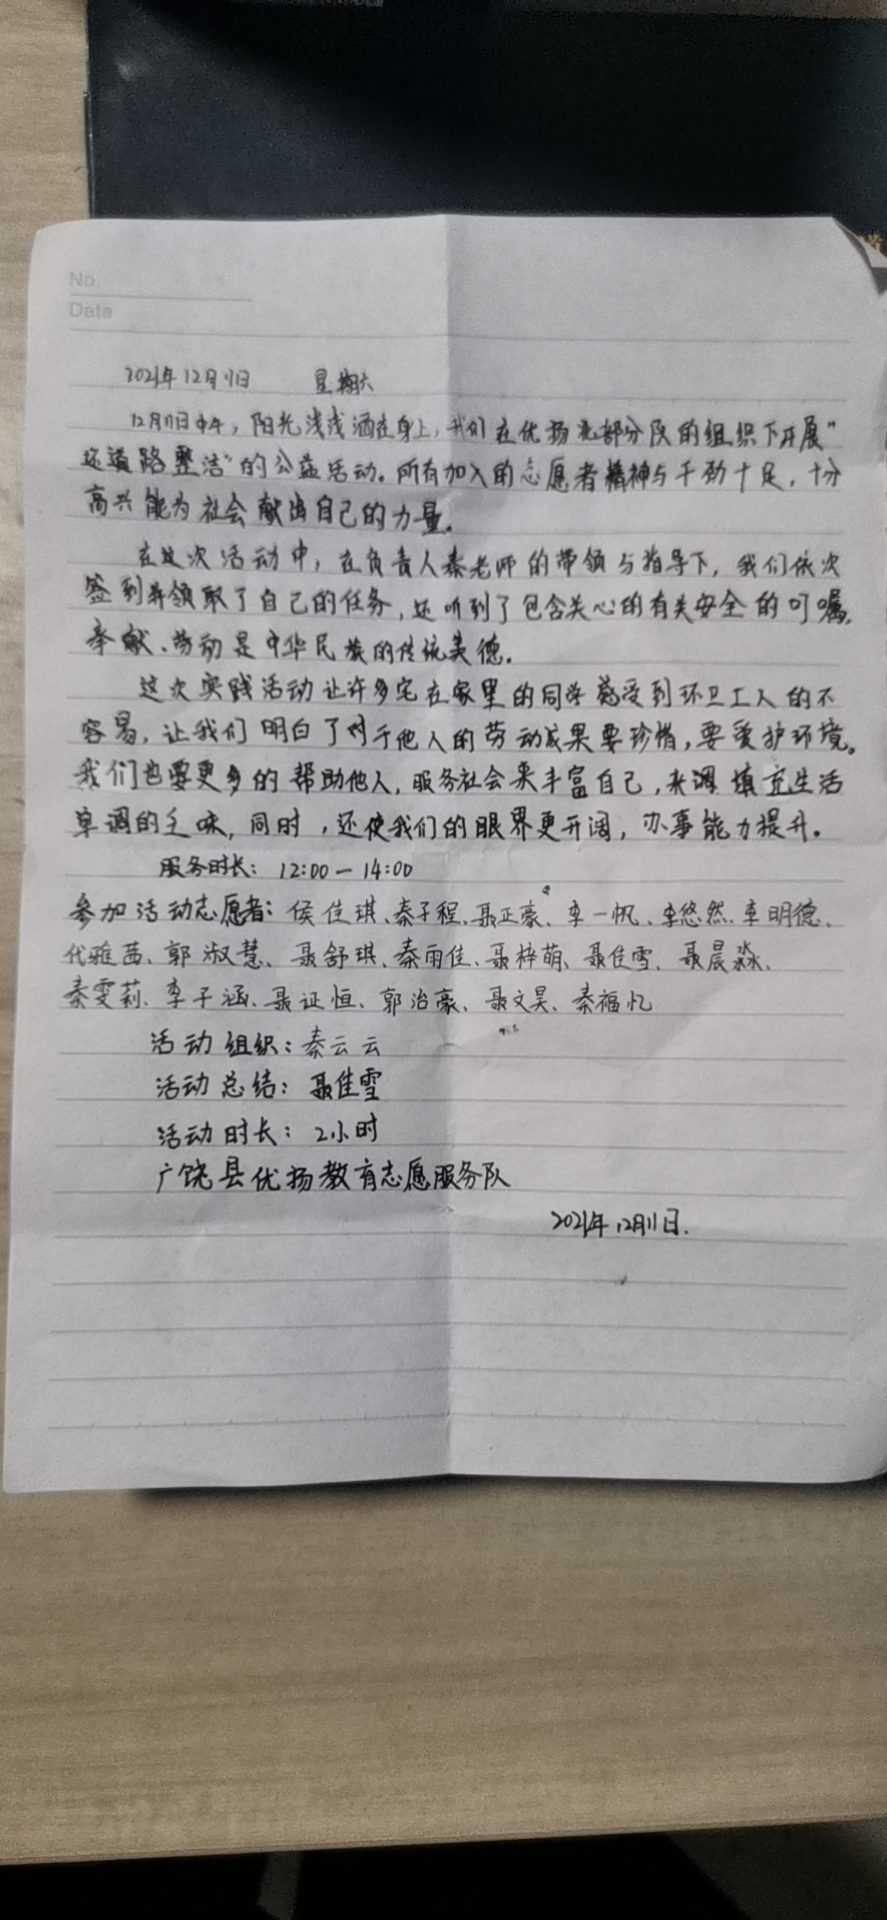 No.
Date
2021年12月11日 星期六
12月11日中午，阳光浅浅洒在身上，我们在优扬北部分队的组织下开展“
还道路整洁”的公益活动。所有加入的志愿者精神与干劲十足，十分
高兴能为社会献出自己的力量。
在这次活动中，在负责人秦老师的带领与指导下，我们依次
签到并领取了自己的任务，还听到了包含关心的有关安全的叮嘱。
奉献、劳动是中华民族的传统美德。
这次实践活动让许多宅在家里的同学感受到环卫工人的不
容易，让我们明白了对于他人的劳动成果要珍惜，要爱护环境。
我们也要更多的帮助他人，服务社会来丰富自己，来调填充生活
单调的乏味，同时，还使我们的眼界更开阔，办事能力提升。
服务时长：12:00—14:00
参加活动志愿者：侯佳琪、秦子程、聂正豪、李一帆、李悠然、李明德、
代雅茜、郭淑慧、聂舒琪、秦雨佳、聂梓萌、聂佳雪、聂晨淼、
秦雯莉、李子涵、聂证恒、郭治豪、聂文昊、秦福忆
活动组织：秦云云
活动总结：聂佳雪
活动时长：2小时
广饶县优扬教育志愿服务队
2021年12月11日.